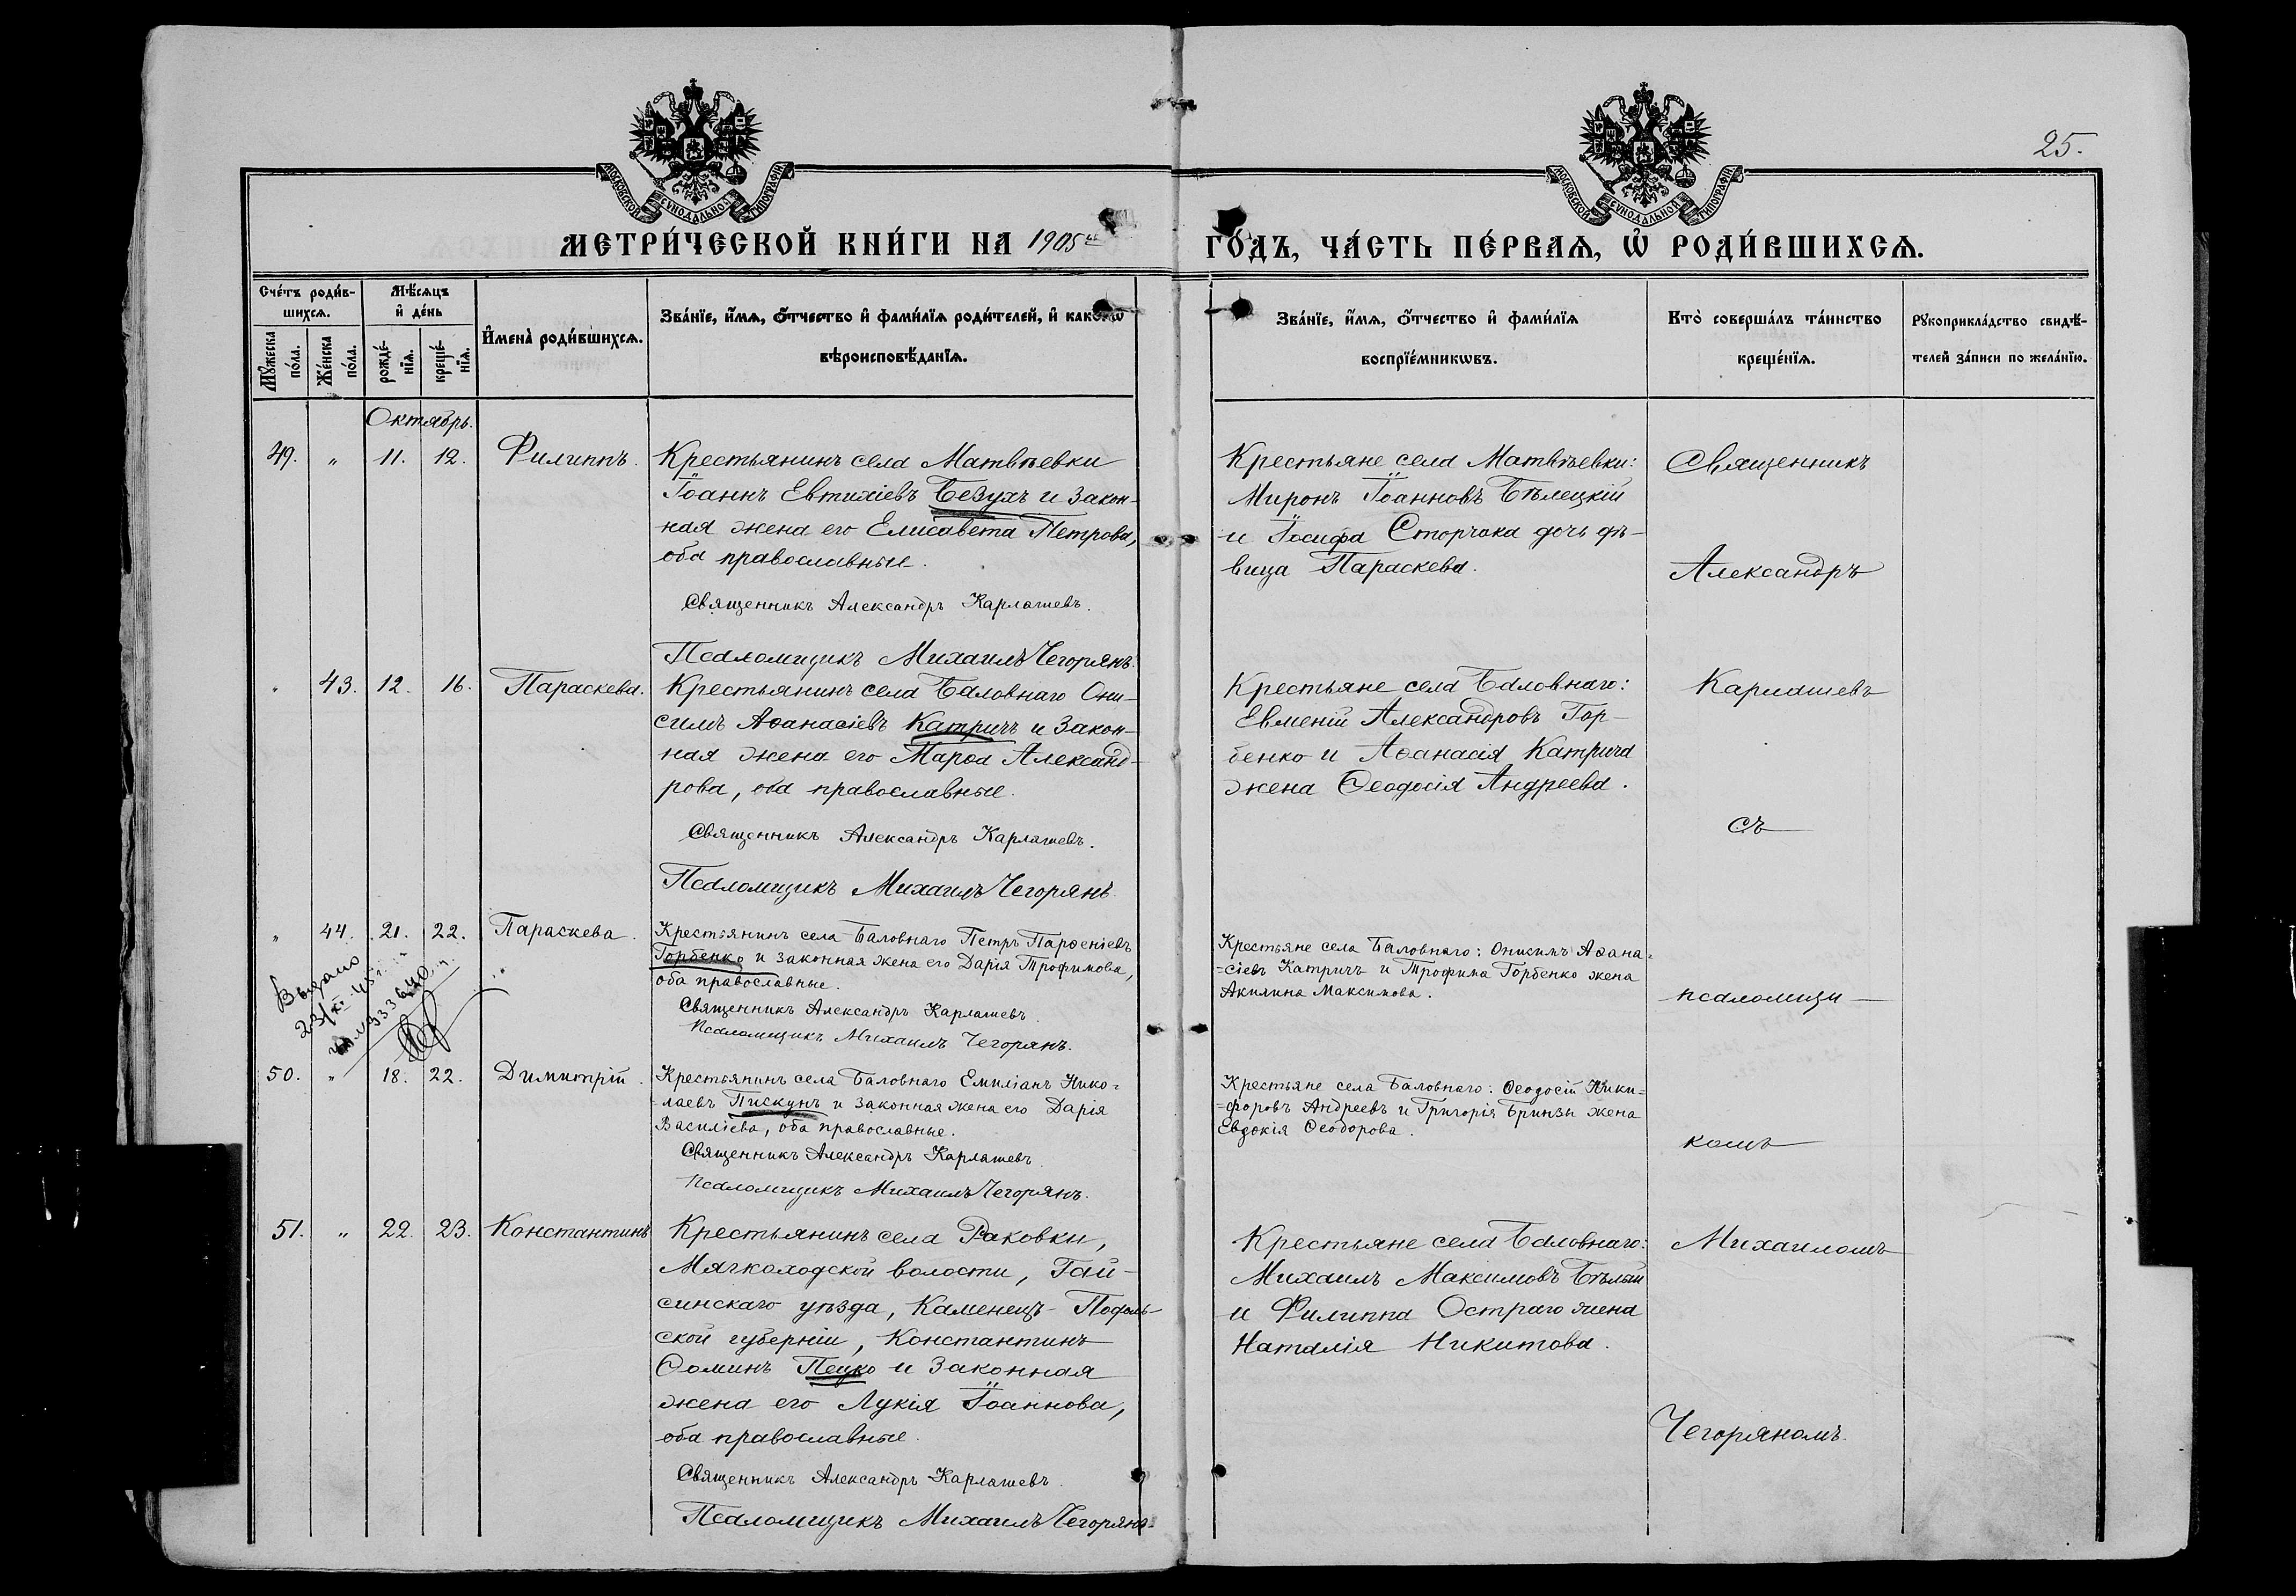 25.
МОСКОВСКОЙ СУНОДАЛЬНОЙ ТИПОГРАФІИ
МОСКОВСКОЙ СУНОДАЛЬНОЙ ТИПОГРАФІИ
МЕТРИ́ЧЕСКОЙ КНИ́ГИ НА 1905й ГО́ДЪ, ЧА́СТЬ ПЕ́РВАѦ, Ѡ҆ РОДИ́ВШИХСѦ.
Сче́тъ роди́в-
шихсѧ.
Мꙋ́жеска
по́ла.
Же́нска
по́ла.
Мѣ́сѧцъ
и҆ де́нь
рожде́-
нїѧ.
креще́-
нїѧ.
И҆мена̀ роди́вшихсѧ.
Зва́нїе, и҆́мѧ, ѻ҆́тчество и҆ фами́лїѧ роди́телей, и҆ како́гѡ
вѣроисповѣ́данїѧ.
Зва́нїе, и҆́мѧ, ѻ҆́тчество и҆ фами́лїѧ
воспрїе́мникѡвъ.
Кто̀ соверша́лъ та́инство
креще́нїѧ.
Рꙋкоприкла́дство свидѣ́-
телей за́писи по жела́нїю.
Октябрь.
49. " 11. 12. Филиппъ.
Крестьянинъ села Матвѣевки
Іоаннъ Евтихіевъ Безухъ и закон-
ная жена его Елисавета Петрова,
оба православные.
Священникъ Александръ Карлашевъ.
Псаломщикъ Михаилъ Чегорянъ.
Крестьяне села Матвѣевки:
Миронъ Іоанновъ Бѣлецкій
и Іосифа Сторчака дочь дѣ-
вица Параскева.
Священникъ
Александръ
" 43. 12. 16. Параскева.
Крестьянинъ села Баловнаго Они-
симъ Аѳанасіевъ Катричъ и закон-
ная жена его Марѳа Александ-
рова, оба православные.
Священникъ Александръ Карлашевъ.
Псаломщикъ Михаилъ Чегорянъ.
Крестьяне села Баловнаго:
Евменій Александровъ Гор-
бенко и Аѳанасія Катрича
жена Ѳеодосія Андреева.
Карлашевъ
съ
" 44. 21. 22. Параскева.
Крестьянинъ села Баловнаго Петръ Парѳеніевъ
Горбенко и законная жена его Дарія Трофимова,
оба православные.
Священникъ Александръ Карлашевъ.
Псаломщикъ Михаилъ Чегорянъ.
Крестьяне села Баловнаго: Онисимъ Аѳана=
=сіевъ Катричъ и Трофима Горбенко жена
Акилина Максимова.
псаломщи-
Выдано
23/XI 45 г.
50. " 18. 22. Димитрій.
Крестьянинъ села Баловнаго Емиліанъ Нико=
=лаевъ Пискунъ и законная жена его Дарія
Василіева, оба православные.
Священникъ Александръ Карлашевъ.
Псаломщикъ Михаилъ Чегорянъ.
Крестьяне села Баловнаго: Ѳеодосій Ники=
=форовъ Андреевъ и Григорія Бринзы жена
Евдокія Ѳеодорова.
комъ
51. " 22. 23. Константинъ
Крестьянинъ села Раковки,
Мягкоходской волости, Гай-
синскаго уѣзда, Каменецъ-Подоль-
ской губерніи, Константинъ
Ѳоминъ Пецко и законная
жена его Лукія Іоаннова,
оба православные.
Священникъ Александръ Карлашевъ.
Псаломщикъ Михаилъ Чегорянъ.
Крестьяне села Баловнаго:
Михаилъ Максимовъ Бѣлый
и Филиппа Остраго жена
Наталія Никитова.
Михаиломъ
Чегоряномъ.